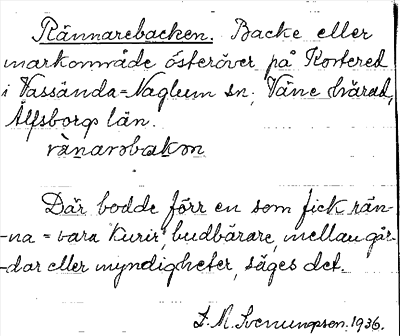 Rännarebacken. Backe eller
markområde österöver på Kortered
i Vassända-Naglum sn; Väne härad,
Älfsborgs län.
rä̀narəbakən
Där bodde förr en som fick rän-
-na = vara kurir, budbärare, mellan går-
-dar eller myndigheter, säges det.
J. M. Svenungsson. 1936.